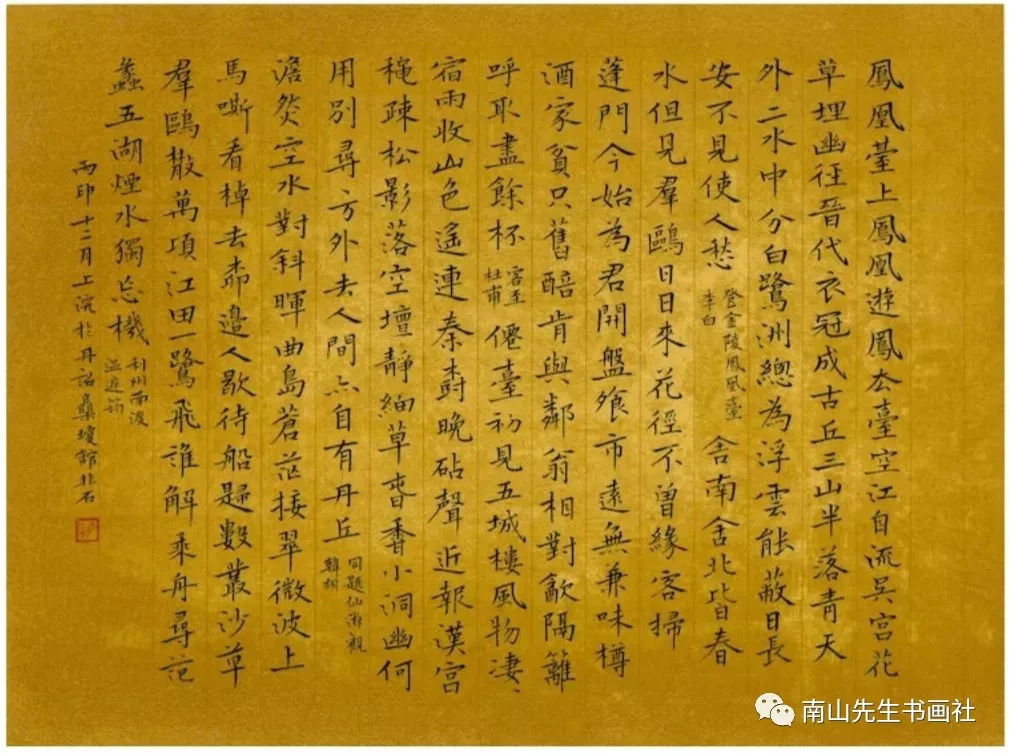 鳳凰臺上鳳凰遊鳳去臺空江自流吳宮花
草埋幽徑晉代衣冠成古丘三山半落青天
外二水中分白鷺洲總為浮雲能蔽日長
安不見使人愁 登金陵鳳凰臺 李白 舍南舍北皆春
水但見羣鷗日日來花徑不曾緣客掃
蓬門今始為君開盤飧市遠無兼味樽
酒家貧只舊醅肯與鄰翁相對飲隔籬
呼取盡餘杯 客至 杜甫 僊臺初見五城樓風物淒〻
宿雨收山色遙連秦樹晚砧聲近報漢宮
穐疎松影落空壇靜細草春香小洞幽何
用別尋方外去人間亦自有丹丘 同題仙游觀 韓翃
澹然空水對斜暉曲島蒼茫接翠微波上
馬嘶看棹去柳邊人歇待船歸數叢沙草
羣鷗散萬頃江田一鷺飛誰解乘舟尋范
蠡五湖煙水獨忘機 利州南渡 溫庭筠
丙申十二月上浣於丹詔集瓊館非石
南山先生书画社